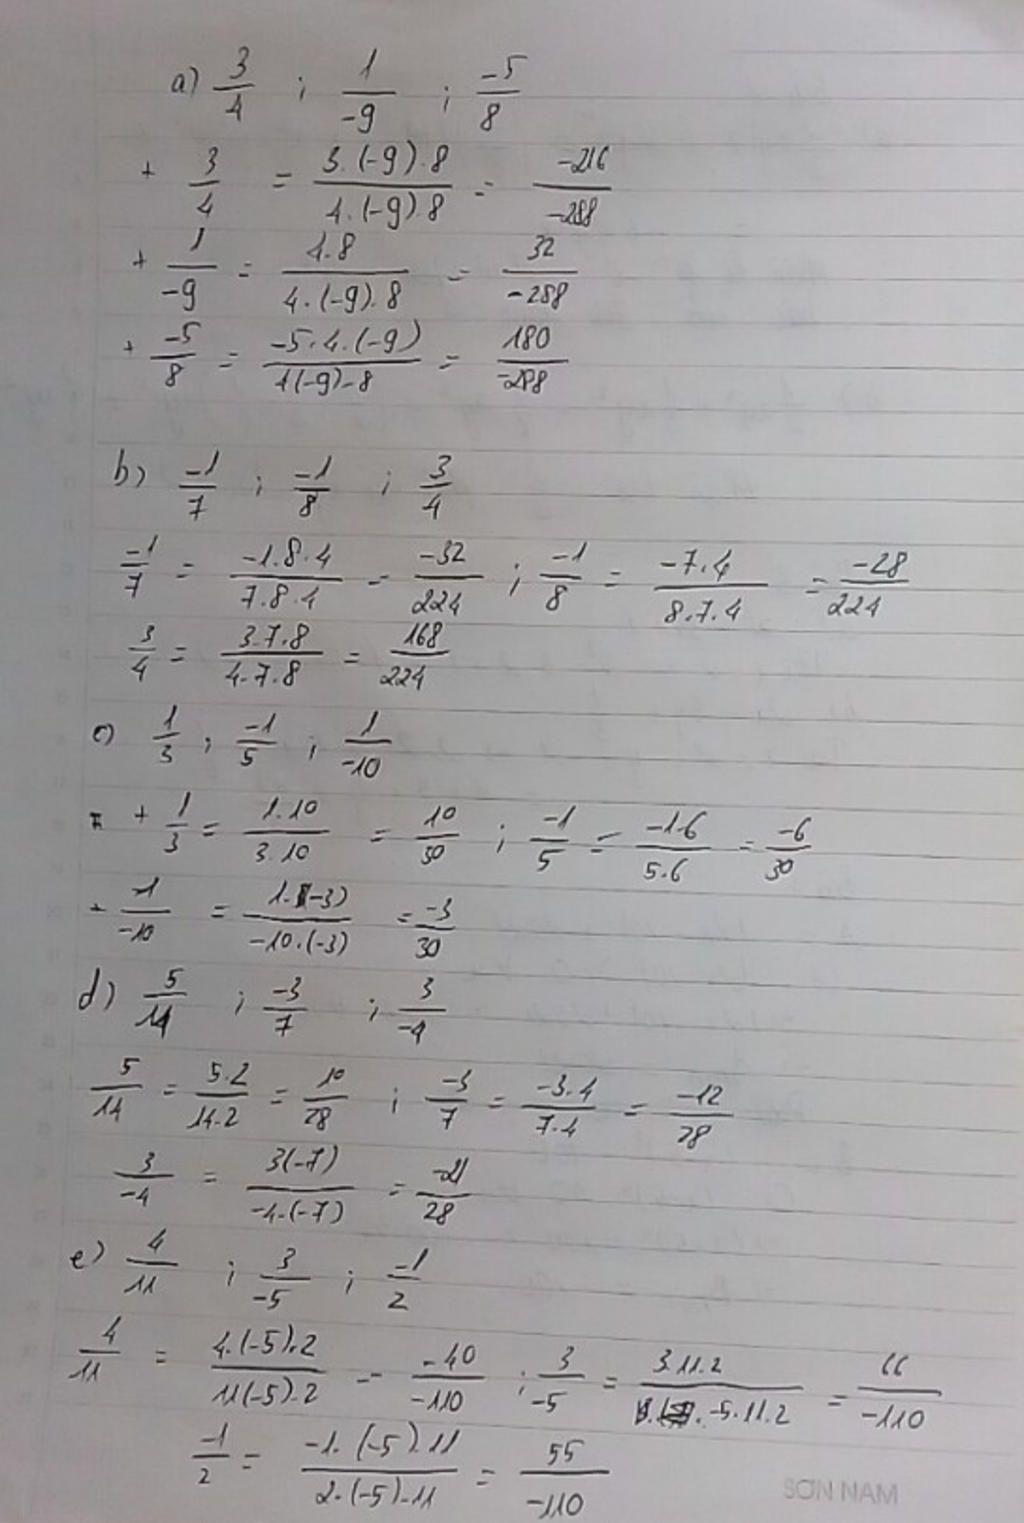 a) 3/4 ; 1/-9 ; -5/8
+ 3/4 = 3.(-9).8/4.(-9).8 = -216/-288
+ 1/-9 = 4.8/4.(-9).8 = 32/-288
+ -5/8 = -5.4.(-9)/4(-9).8 = 180/-288
b) -1/7 ; -1/8 ; 3/4
-1/7 = -1.8.4/7.8.4 = -32/224 ; -1/8 = -7.4/8.7.4 = -28/224
3/4 = 3.7.8/4.7.8 = 168/224
c) 1/3 ; -1/5 ; 1/-10
+ 1/3 = 1.10/3.10 = 10/30 ; -1/5 = -1.6/5.6 = -6/30
+ 1/-10 = 1.(-3)/-10.(-3) = -3/30
d) 5/14 ; -3/7 ; 3/-4
5/14 = 5.2/14.2 = 10/28 ; -3/7 = -3.4/7.4 = -12/28
3/-4 = 3(-7)/-4.(-7) = -21/28
e) 4/11 ; 3/-5 ; -1/2
4/11 = 4.(-5).2/11(-5).2 = -40/-110 ; 3/-5 = 3.11.2/-5.11.2 = 66/-110
-1/2 = -1.(-5).11/2.(-5).11 = 55/-110
SƠN NAM